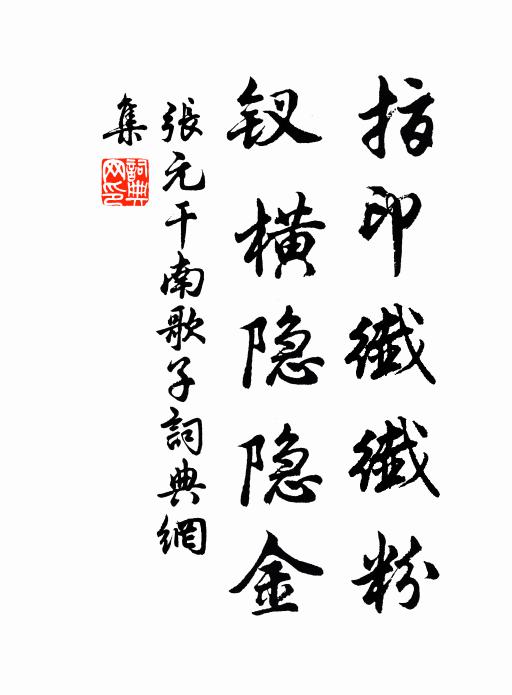 指印纖纖粉
钗橫隐隐金
張元干南歌子詞典網
集
詞典网印